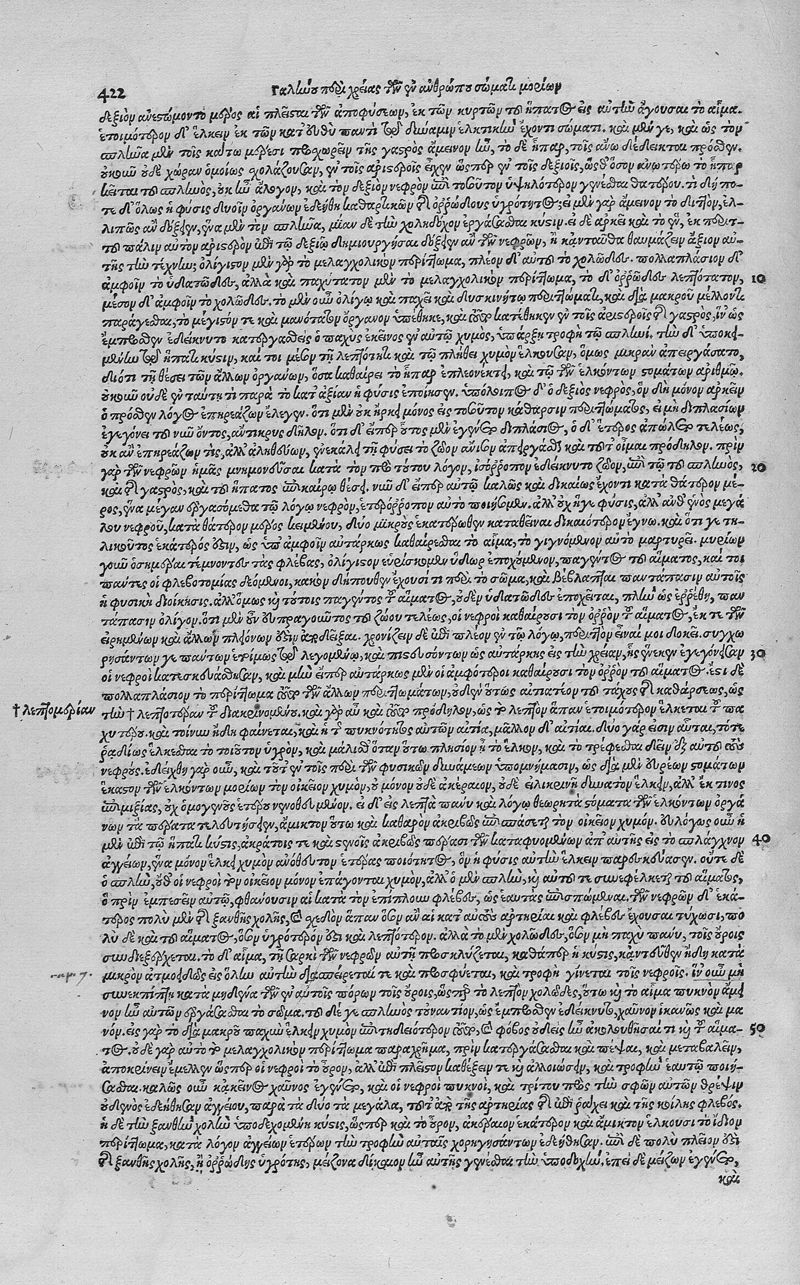 422 Γαληνοῦ περὶ χρείας τῶν ἐν ἀνθρώπου σώματι μορίων
δεξιὸν ἀνεστόμοντο μέρος αἱ πλεῖσται τῶν ἀποφύσεων, ἐκ τῶν κυρτῶν τοῦ ἥπατος εἰς αὐτὴν ἄγουσαι τὸ αἷμα.
ἑτοιμότερον δ' ἕλκειν ἐκ τῶν κατ' εὐθὺ παντὶ τῷ δύναμιν ἑλκτικὴν ἔχοντι σώματι. καὶ μὴν γε, καὶ ὡς τὸν
σπλῆνα μὲν τοῖς κάτω μέρεσι προχωρεῖν τῆς γαστρὸς ἄμεινον ἦν, τὸ δὲ ἧπαρ, τοῖς ἄνω δέδεικται πρόσθεν.
οὔκουν οὐδὲ χώραν ὁμοίως σχολάζουσαν, ἐν τοῖς ἀριστεροῖς εἶχεν ὥσπερ ἐν τοῖς δεξιοῖς, ὥσθ' ὅσον ἀνωτέρω τὸ ἧπαρ
κεῖται τοῦ σπληνὸς, οὐκ ἦν ἄλογον, καὶ τὸν δεξιὸν νεφρὸν ἐπὶ τοσοῦτον ὑψηλότερον γενέσθαι θατέρου. τί δήπο-
τε δ' ὅλως ἡ φύσις δυοῖν ὀργάνων ἐδεήθη καθαρτικῶν τῆς ὀρρώδους ὑγρότητος; εἰ μὲν γὰρ ἄμεινον τὸ διττὸν, ἐλ-
λιπῶς ἂν δόξειεν, ἕνα μὲν τὸν σπλῆνα, μίαν δὲ τὴν χοληδόχον ἐργάζεσθαι κύστιν. εἰ δὲ ἀρκεῖ καὶ τὸ ἓν, ἐκ περιτ-
τοῦ πάλιν αὐτὸν ἀριστερὸν ἐπὶ τῷ δεξιῷ δημιουργῆσαι δόξειεν ἂν τῶν νεφρῶν, ἢ κἀνταῦθα θαυμάζειν ἄξιον αὐ-
τῆς τὴν τέχνην; ὀλίγιστον μὲν γὰρ τὸ μελαγχολικὸν περίττωμα, πλέον δ' αὐτοῦ τὸ χολῶδες. πολλαπλάσιον δ'
ἀμφοῖν τὸ ὑδατῶδες, ἀλλὰ καὶ παχύτατον μὲν τὸ μελαγχολικὸν περίττωμα, τὸ δ' ὀρρῶδες λεπτότατον, 10
μέσον δ' ἀμφοῖν τὸ χολῶδες. τῷ μὲν οὖν ὀλίγῳ καὶ παχεῖ καὶ δυσκινήτῳ περιττώματι, καὶ διὰ μακροῦ μέλλοντι
παράγεσθαι, τὸ μέγιστόν τε καὶ μανότατον ὄργανον ὑπέθηκε, καὶ κατέθηκεν ἐν τοῖς ἀριστεροῖς τῆς γαστρὸς, ἵν' ὡς
ἔμπροσθεν ἐδείκνυτο κατεργασθεὶς ὁ παχὺς ἐκεῖνος ἐν αὐτῷ χυμὸς, ὑπάρξῃ τροφὴ τῷ σπληνί. τὴν δ' ὑποκει-
μένην τῷ ἥπατι κύστιν, καί τοι μέσον τῇ λεπτότητι καὶ τῷ πλήθει χυμὸν ἕλκουσαν, ὅμως μικρὰν ἀπειργάσατο,
διότι τῇ θέσει τῶν ἄλλων ὀργάνων, ὅσα καθαίρει τὸ ἧπαρ ἐπλεονέκτει, καὶ τῷ τῶν ἑλκόντων στομάτων ἀριθμῷ.
οὔκουν οὐδ' ἐν ταύτῃ τι παρὰ τὸ κατ' ἀξίαν ἡ φύσις ἐποίησεν. ὑπόλοιπος δ' ὁ δεξιὸς νεφρὸς, ὃν δὴ μόνον ἀρκεῖν
ὁ πρόσθεν λόγος ἐπηρεάζων ἔλεγεν. ὅτι μὲν οὐκ ἤρκει μόνος εἰς τοσούτου κάθαρσιν περιττώματος, εἰ μὴ διπλασίων
ἐγεγόνει τοῦ νῦν ὄντος, ἄντικρυς δῆλον. ὅτι δ' εἴπερ οὗτος μὲν ἐγένετο διπλάσιος, ὁ δ' ἕτερος ἀπώλετο τελέως,
οὐκ ἂν ἐπηρεάζων τις, ἀλλ' ἀληθεύων, ἐνεκάλει τῇ φύσει τὸ ζῷον ἄνισον ἀπεργάζεσθαι καὶ τοῦτ' οἶμαι πρόδηλον. πρὶν
γὰρ τῶν νεφρῶν ἡμᾶς μνημονεῦσαι κατὰ τὸν πρὸ τούτου λόγον, ἰσόρροπον ἐδείκνυτο ζῷον, ἐπὶ τῷ τοῦ σπληνὸς, 20
καὶ τῆς γαστρὸς, καὶ τοῦ ἥπατος ἐπικαίρῳ θέσει. νῦν δ' εἴπερ αὐτῷ καλῶς καὶ δικαίως ἔχοντι κατὰ θάτερον μέ-
ρος, ἕνα μέγαν ἐργασόμεθα τῷ λόγῳ νεφρὸν, ἑτερόρροπον αὐτὸ ποιήσομεν. ἀλλ' οὐχ ἥ γε φύσις, ἀλλ' ἀνθ' ἑνὸς μεγά
λου νεφροῦ, κατὰ θάτερον μέρος κειμένου, δύο μικροὺς ἑκατέρωθεν καταθεῖναι δικαιότερον ἔγνω. καὶ ὅτι γε τη-
λικοῦτος ἑκάτερός ἐστιν, ὡς ὑπ' ἀμφοῖν αὐτάρκως καθαίρεσθαι τὸ αἷμα, τὸ γιγνόμενον αὐτὸ μαρτυρεῖ. μυρίων
γοῦν ὁσημέραι τέμνοντές τὰς φλέβας, ὀλίγιστον εὑρίσκομεν ὕδωρ ἐποχούμενον, παγέντος τοῦ αἵματος, καί τοι
πάντες οἱ φλεβοτομίας δεόμενοι, κακὸν δήπουθεν ἔχουσί τι περὶ τὸ σῶμα, καὶ βέβλαπται παντάπασιν αὐτοῖς
ἡ φυσικὴ διοίκησις. ἀλλ' ὅμως καὶ τούτοις παγέντος τοῦ αἵματος, οὐδὲν ὑδατῶδες ἐποχεῖται, πλὴν ὡς ἐρρέθη, παν
τάπασιν ὀλίγον. ὅτι μὲν ἓν εὐπραγοῦντος τοῦ ζῴου τελέως, οἱ νεφροὶ καθαίρουσι τὸν ὀρρὸν τοῦ αἵματος, ἔκ τε τῶν
εἰρημένων καὶ ἄλλων πλειόνων ἔστιν ἀποδεῖξαι. χρονίζειν δὲ ἐπὶ πλέον ἐν τῷ λόγῳ, περιττὸν εἶναί μοι δοκεῖ. συγχω
ρησάντων γε πάντων ἑτοίμως τῷ λεγομένῳ, καὶ πιστευσάντων ὡς αὐτάρκης εἰς τὴν χρείαν, ἧς ἕνεκεν ἐγεγόνεσαν 30
οἱ νεφροὶ κατεσκευάσθησαν, καὶ μὴν εἴπερ αὐτάρκως μὲν οἱ ἀμφότεροι καθαίρουσι τὸν ὀρρὸν τοῦ αἵματος. ἔστι δὲ
πολλαπλάσιον τὸ περίττωμα τῶν ἄλλων περιττωμάτων, οὐδὲν οὕτως αἰτιατέον τοῦ τάχους τῆς καθάρσεως, ὡς
† λεπτομέρειαν
τὴν † λεπτότεραν τοῦ διακρινομένου. καὶ γὰρ αὖ καὶ πρόδηλον, ὡς τὸ λεπτὸν ἅπαν ἑτοιμότερον ἕλκεται τοῦ πα
χυτέρου. καὶ τοίνυν ἤδη φαίνεται, καὶ ἡ τοῦ πυκνότητος αὐτῶν αἰτία, μᾶλλον δ' αἰτίαι. δύο γάρ εἰσιν αὗται, τό τε
ῥᾳδίως ἕλκεσθαι τὸ τοιοῦτον ὑγρὸν, καὶ μάλισθ' ὅταν οὕτω πλησίον ᾖ τὸ ἕλκον, καὶ τὸ τρέφεσθαι δεῖν ἐξ αὐτοῦ τοὺς
νεφρούς. ἐδείχθη γὰρ οὖν, καὶ τοῦτ' ἐν τοῖς περὶ τῶν φυσικῶν δυνάμεων ὑπομνήμασιν, ὡς διὰ μὲν εὐρέων στομάτων
ἕκαστον τῶν ἑλκόντων μορίων τὸν οἰκεῖον χυμὸν, οὐ μόνον οὐδὲ ἀκέραιον, οὐδὲ εἰλικρινῆ δυνατὸν ἕλκειν, ἀλλ' ἔκ τινος
ἐπιμιξίας, οὐχ ὁμογενοῦς ἑτέρου νενοθευμένον. εἰ δ' εἰς λεπτὰ πάνυ καὶ λόγῳ θεωρητὰ στόματα τῶν ἑλκόντων ὀργά
νων τὰ πέρατα τελευτήσειεν, ἄμικτον οὕτω καὶ καθαρὸν ἀκριβῶς ἐπισπᾶται τὸν οἰκεῖον χυμόν. εὐλόγως οὖν ἡ
μὲν ἐπὶ τῷ ἥπατι κύστις, ἀκράτοις τε καὶ στενοῖς ἀκριβῶς πέρασι τῶν καταφυομένων ἀπ' αὐτῆς εἰς τὸ σπλάγχνον 40
ἀγγείων, ἕνα μόνον ἕλκει χυμὸν ἀνόθευτον ἑτέρας ποιότητος, ὃν ἡ φύσις αὐτὴν ἕλκειν παρεσκεύασεν. οὔτε δὲ
ὁ σπλὴν, οὔθ' οἱ νεφροὶ τὸν οἰκεῖον μόνον ἐπάγονται χυμὸν, ἀλλ' ὁ μὲν σπλὴν, καὶ αὐτοῦ τε συνεφέλκεται τοῦ αἵματος,
ὃ πρὶν ἐμπεσεῖν αὐτῷ, φθάνουσιν αἱ κατὰ τὸν ἐπίπλουν φλέβες, ὡς ἑαυτὰς ἐπισπώμεναι. τῶν νεφρῶν δ' ἑκά-
τερος πολὺ μὲν τῆς ξανθῆς χολῆς, σχεδὸν ἅπαν ὅσον ἂν αἱ κατ' αὐτοὺς ἀρτηρίαι καὶ φλέβες ἔχουσαι τύχωσι, πο
λὺ δὲ καὶ τοῦ αἵματος, ὅσον ὑγρότερόν ἐστι καὶ λεπτότερον. ἀλλὰ τὸ μὲν χολῶδες, ὅσον μὴ παχὺ πάνυ, τοῖς οὔροις
συνδιεξέρχεται. τὸ δ' αἷμα, τῇ σαρκὶ τῶν νεφρῶν αὐτῇ προσκλύζεται, καθάπερ ἡ κύστις, κἀντεῦθεν ἤδη κατὰ
μικρὸν ἀτμοειδῶς εἰς ὅλην αὐτὴν διασπείρεταί τε καὶ προσφύεται, καὶ τροφὴ γίνεται τοῖς νεφροῖς. ἵν' οὖν μὴ
συνεκπίπτῃ κατὰ μηδένα τῶν ἐν αὐτοῖς πόρων τοῖς οὔροις, ὥσπερ τὸ λεπτὸν χολῶδες, οὕτω καὶ τὸ αἷμα πυκνὸν ἄμει
νον ἦν αὐτῶν ἐργάζεσθαι τὸ σῶμα. τοῦ δέ γε σπληνὸς τοὐναντίον, ὡς ἔμπροσθεν ἐδείκνυτο, χαῦνον ἱκανῶς καὶ μα
νόν. εἰς γὰρ τὸ διὰ μακροῦ παχὺν ἕλκειν χυμὸν ἐπιτηδειότερον οὗτος, φόβος οὐδεὶς ἦν ἀκολουθῆσαί τι καὶ τοῦ αἵμα- 50
τος. οὐδὲ γὰρ αὐτὸ τὸ μελαγχολικὸν περίττωμα παραχρῆμα, πρὶν κατεργάζεσθαι καὶ πέψαι, καὶ μεταβαλεῖν,
ἀποκρίνειν ἔμελλεν ὥσπερ οἱ νεφροὶ τὸ οὖρον, ἀλλ' ἐπὶ πλεῖστον καθέξειν τε καὶ ἀλλοιώσειν, καὶ τροφὴν ἑαυτῷ ποιή-
ζεσθαι. καλῶς οὖν κἀκεῖνος χαῦνος ἐγένετο, καὶ οἱ νεφροὶ πυκνοὶ, καὶ τρίτου πρὸς τὴν σφῶν αὐτῶν θρέψιν
οὐδενὸς ἐδεήθησαν ἀγγείου, παρὰ τὰ δύο τὰ μεγάλα, τό τ' ἀπὸ τῆς ἀρτηρίας τῆς ἐπὶ ῥάχει καὶ τῆς κοίλης φλεβός.
ἡ δὲ τὴν ξανθὴν χολὴν ὑποδεχομένη κύστις, ὥσπερ καὶ τὸ οὖρον, ἀκέραιον ἑκάτερον καὶ ἄμικτον ἕλκουσι τὸ ἴδιον
περίττωμα, κατὰ λόγον ἀγγείων ἑτέρων τὴν τροφὴν αὐταῖς χορηγησάντων ἐδεήθησαν. ἐπεὶ δὲ πολὺ πλεῖόν ἐστι
τῆς ξανθῆς χολῆς, ἡ ὀρρώδης ὑγρότης, μείζονα δίκαιον ἦν αὐτῆς γενέσθαι τὴν ὑποδοχήν. ἐπεὶ δὲ μείζων ἐγένετο,
καὶ